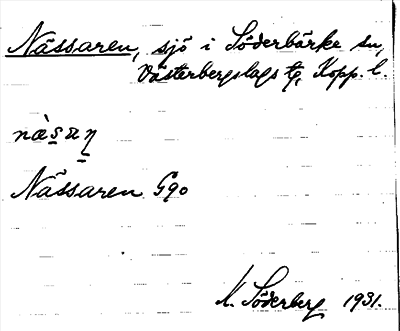 Nässaren, sjö i Söderbärke sn,
Västerbergslags tg, Kopp. l.
nàsaη
Nässaren G90
K. Söderberg 1931.